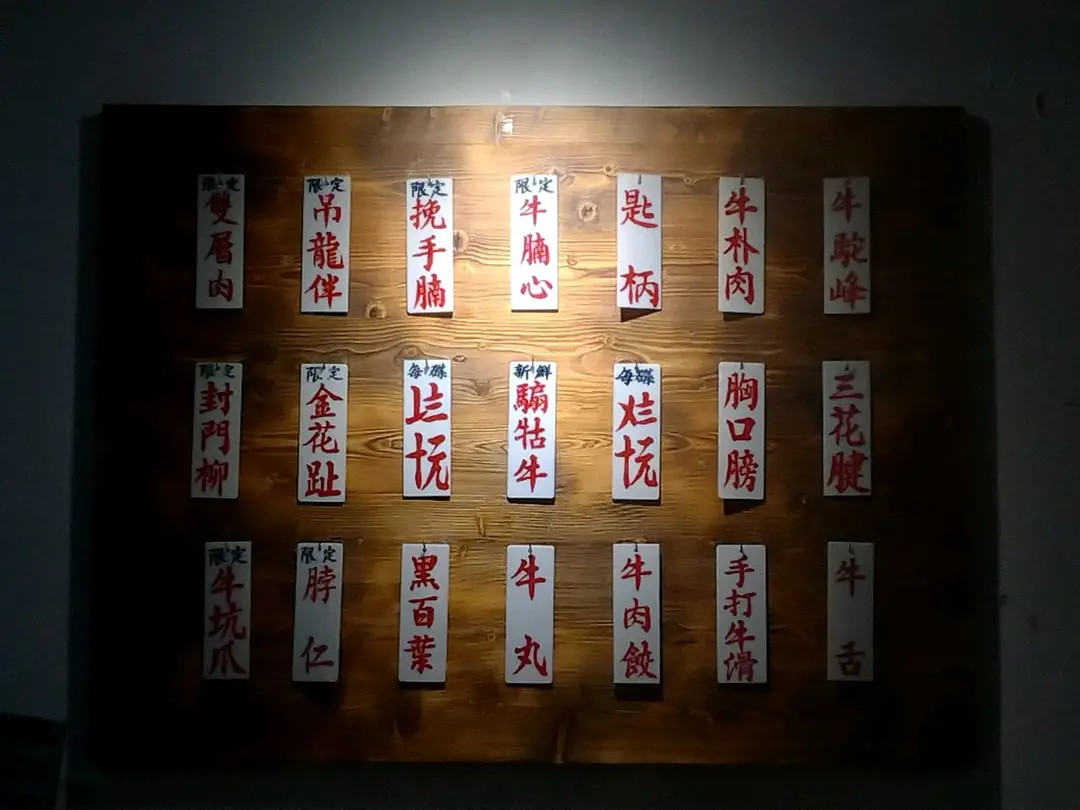 限定
雙層肉
限定
吊龍伴
限定
挽手腩
限定
牛腩心
匙柄
牛朴肉
牛駝峰
限定
封門柳
限定
金花趾
每碟
新鮮
騸牯牛
每碟
胸口膀
三花腱
限定
牛坑爪
限定
脖仁
黑百葉
牛丸
牛肉餃
手打牛滑
牛舌